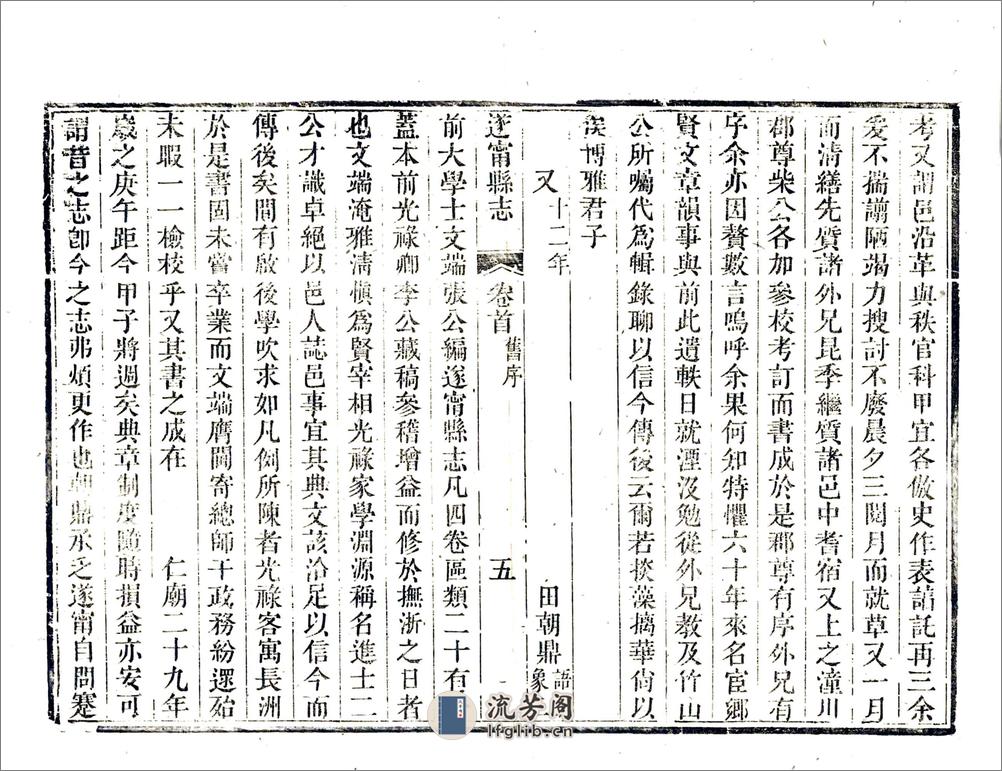 考又謂邑沿革與秩官科甲宜各倣史作表諳託再三余
爰不揣譾陋竭力搜討不廢晨夕三閱月而就草又一月
而清繕先質諸外兄昆季繼質諸邑中耆宿又上之潼川
郡尊柴公各加參校考訂而書成於是郡尊有序外兄有
序余亦因贅數言嗚呼余果何知特懼六十年來名宦鄉
賢文章韻事與前此遺軼日就湮沒勉從外兄教及竹山
公所囑代為輯錄聊以信今傳後云爾若掞藻摛華尙以
俟博雅君子
又十二年 田朝鼎 象諳
遂甯縣志 卷首 舊序 五
前大學士文端張公編遂甯縣志凡四卷區類二十有二
蓋本前光祿卿李公藏稿參稽增益而修於撫浙之日者
也文端淹雅淸愼為賢宰相光祿家學淵源稱名進士二
公才識卓絕以邑人誌邑事宜其典文該洽足以信今而
傳後矣間有啟後學吹求如凡例所陳者光祿客寓長洲
於是書固未嘗卒業而文端膺閫寄總師干政務紛遝殆
未暇一一檢校乎又其書之成在 仁廟二十九年
歲之庚午距今甲子將過矣典章制度隨時損益亦安可
謂昔之志卽今之志弗煩更作也朝鼎承乏遂甯自問蹇
流芳阁
lfglib.cn